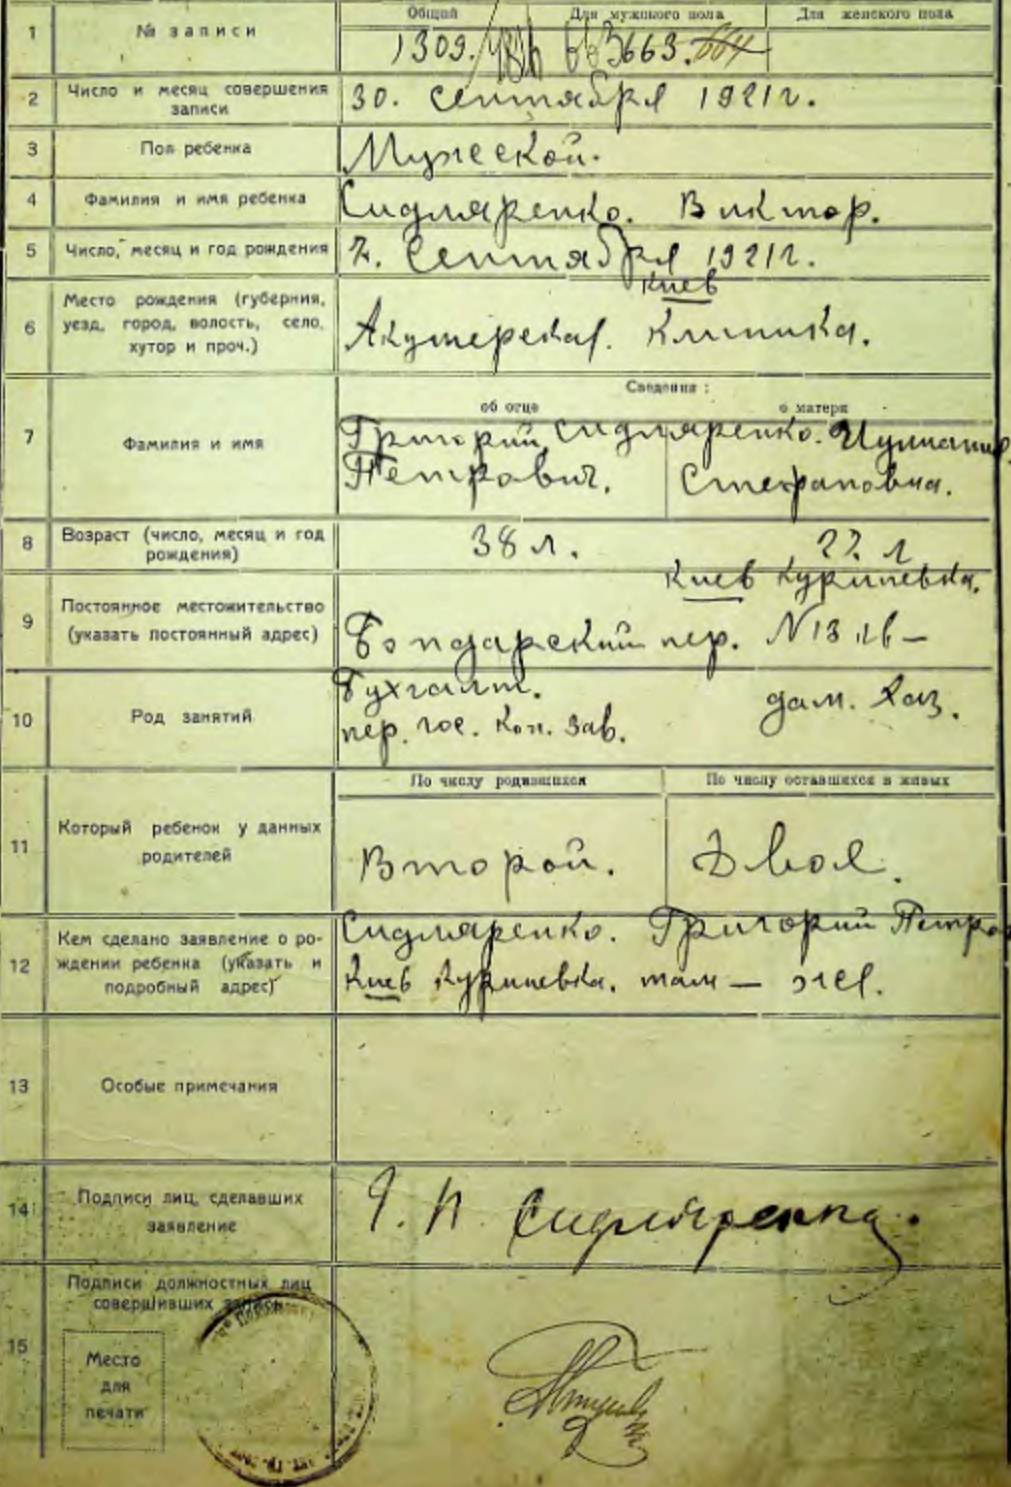 1 № записи Общий Для мужского пола Для женского пола
1309. 663 663. 664
2 Число и месяц совершения
записи
30. Сентября 1921г.
3 Пол ребенка Мужеской.
4 Фамилия и имя ребенка Сидляренко. Виктор.
5 Число, месяц и год рождения 7. Сентября 1921г.
6 Место рождения (губерния,
уезд, город, волость, село,
хутор и проч.)
Киев
Акушерская. Клиника.
Сведения:
об отце о матери
7 Фамилия и имя
Григорий Сидляренко.
Петрович. Стефановна.
8 Возраст (число, месяц и год
рождения)
38 л. л
9 Постоянное местожительство
(указать постоянный адрес)
Киев Куриневка.
Бондарский пер. N13
10 Род занятий
Бухгалт.
пер. гос. Кон. Зав.
дом. Хоз.
По числу родившихся По числу оставшихся в живых
11 Который ребенок у данных
родителей
Второй. Двое.
12 Кем сделано заявление о ро-
ждении ребенка (указать и
подробный адрес)
Сидляренко. Григорий Петро
Киев Куриневка. там — же.
13 Особые примечания
14 Подписи лиц, сделавших
заявление
Г. П. Сидляренко.
15 Подписи должностных лиц
совершивших запись
Место
для
печати